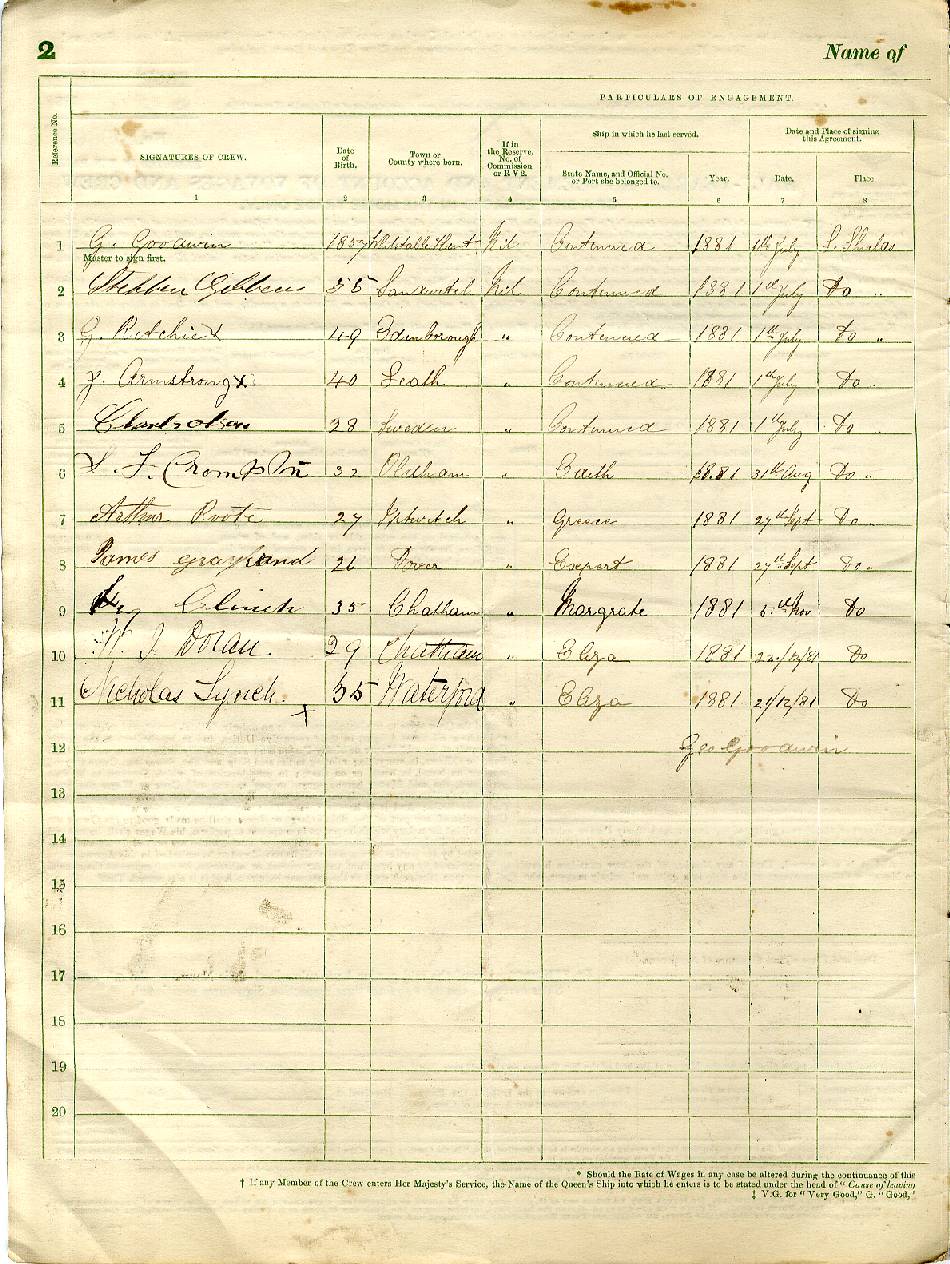 2 Name of
PARTICULARS OF ENGAGEMENT.
Reference No.
SIGNATURES OF CREW.
Date of Birth.
Town or County where born.
If in the Reserve, No. of Commission or R V 2.
Ship in which he last served.
State Name, and Official No. or Port she belonged to.
Year.
Date and Place of signing this Agreement.
Date.
Place
1 2 3 4 5 6 7 8
1 G. Goodwin 1837 Whitstable Kent Nil Contenued 1881 1st July S. Shields
Master to sign first.
2 Stephen Gibbens 55 Nil Contenued 1881 1st July Do "
3 G. Ritchie x 49 Edenborough " Contenued 1881 1st July Do "
4 J. Armstrong x 40 Leath " Contenued 1881 1st July Do
5 28 Sweden " Contenued 1881 1st July Do
6 F. Crompton 32 Oldham " 1881 31st Aug Do "
7 Arthur 27 Ipswitch " Greece 1881 27th Sept Do
8 James 26 Dover " 1881 27th Sept Do "
9 Clinch 35 Chatham " Margrate 1881 Nov Do
10 W. J. Doran. 29 Chatham " Eliza 1881 Do
11 Nicholas Lynch. x 35 Waterford " Eliza 1881 21/12/81 Do
12 Geo Goodwin
13
14
15
16
17
18
19
20
* Should the Rate of Wages in any case be altered during the continuance of this
† If any Member of the Crew enters Her Majesty's Service, the Name of the Queen's Ship into which he enters is to be stated under the head of "Cause of leaving
‡ V.G. for "Very Good," G. "Good,"